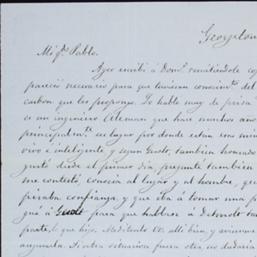 Georgetown
Mi qdo Pablo.
Ayer escribí a Domo remitiéndole co
pareció necesario para que tuviesen conocimto del
carbon que les propongo. Te hablé muy de prisa
a un ingeniero Aleman que hace muchos año
principalmte su lugar por donde estan las min
vivo é inteligente, y segun Gusto, tambien honrado
gustó desde el primer dia, pregunté tambien
me contestó, conocia al lugar y al hombre, que
piraba confianza, y que iba á tomar una p
gué á para que hablára á
frente, que hijo. Meditando en allí bien, y
angustia. Si otra situacion fuera otra, no dudaria